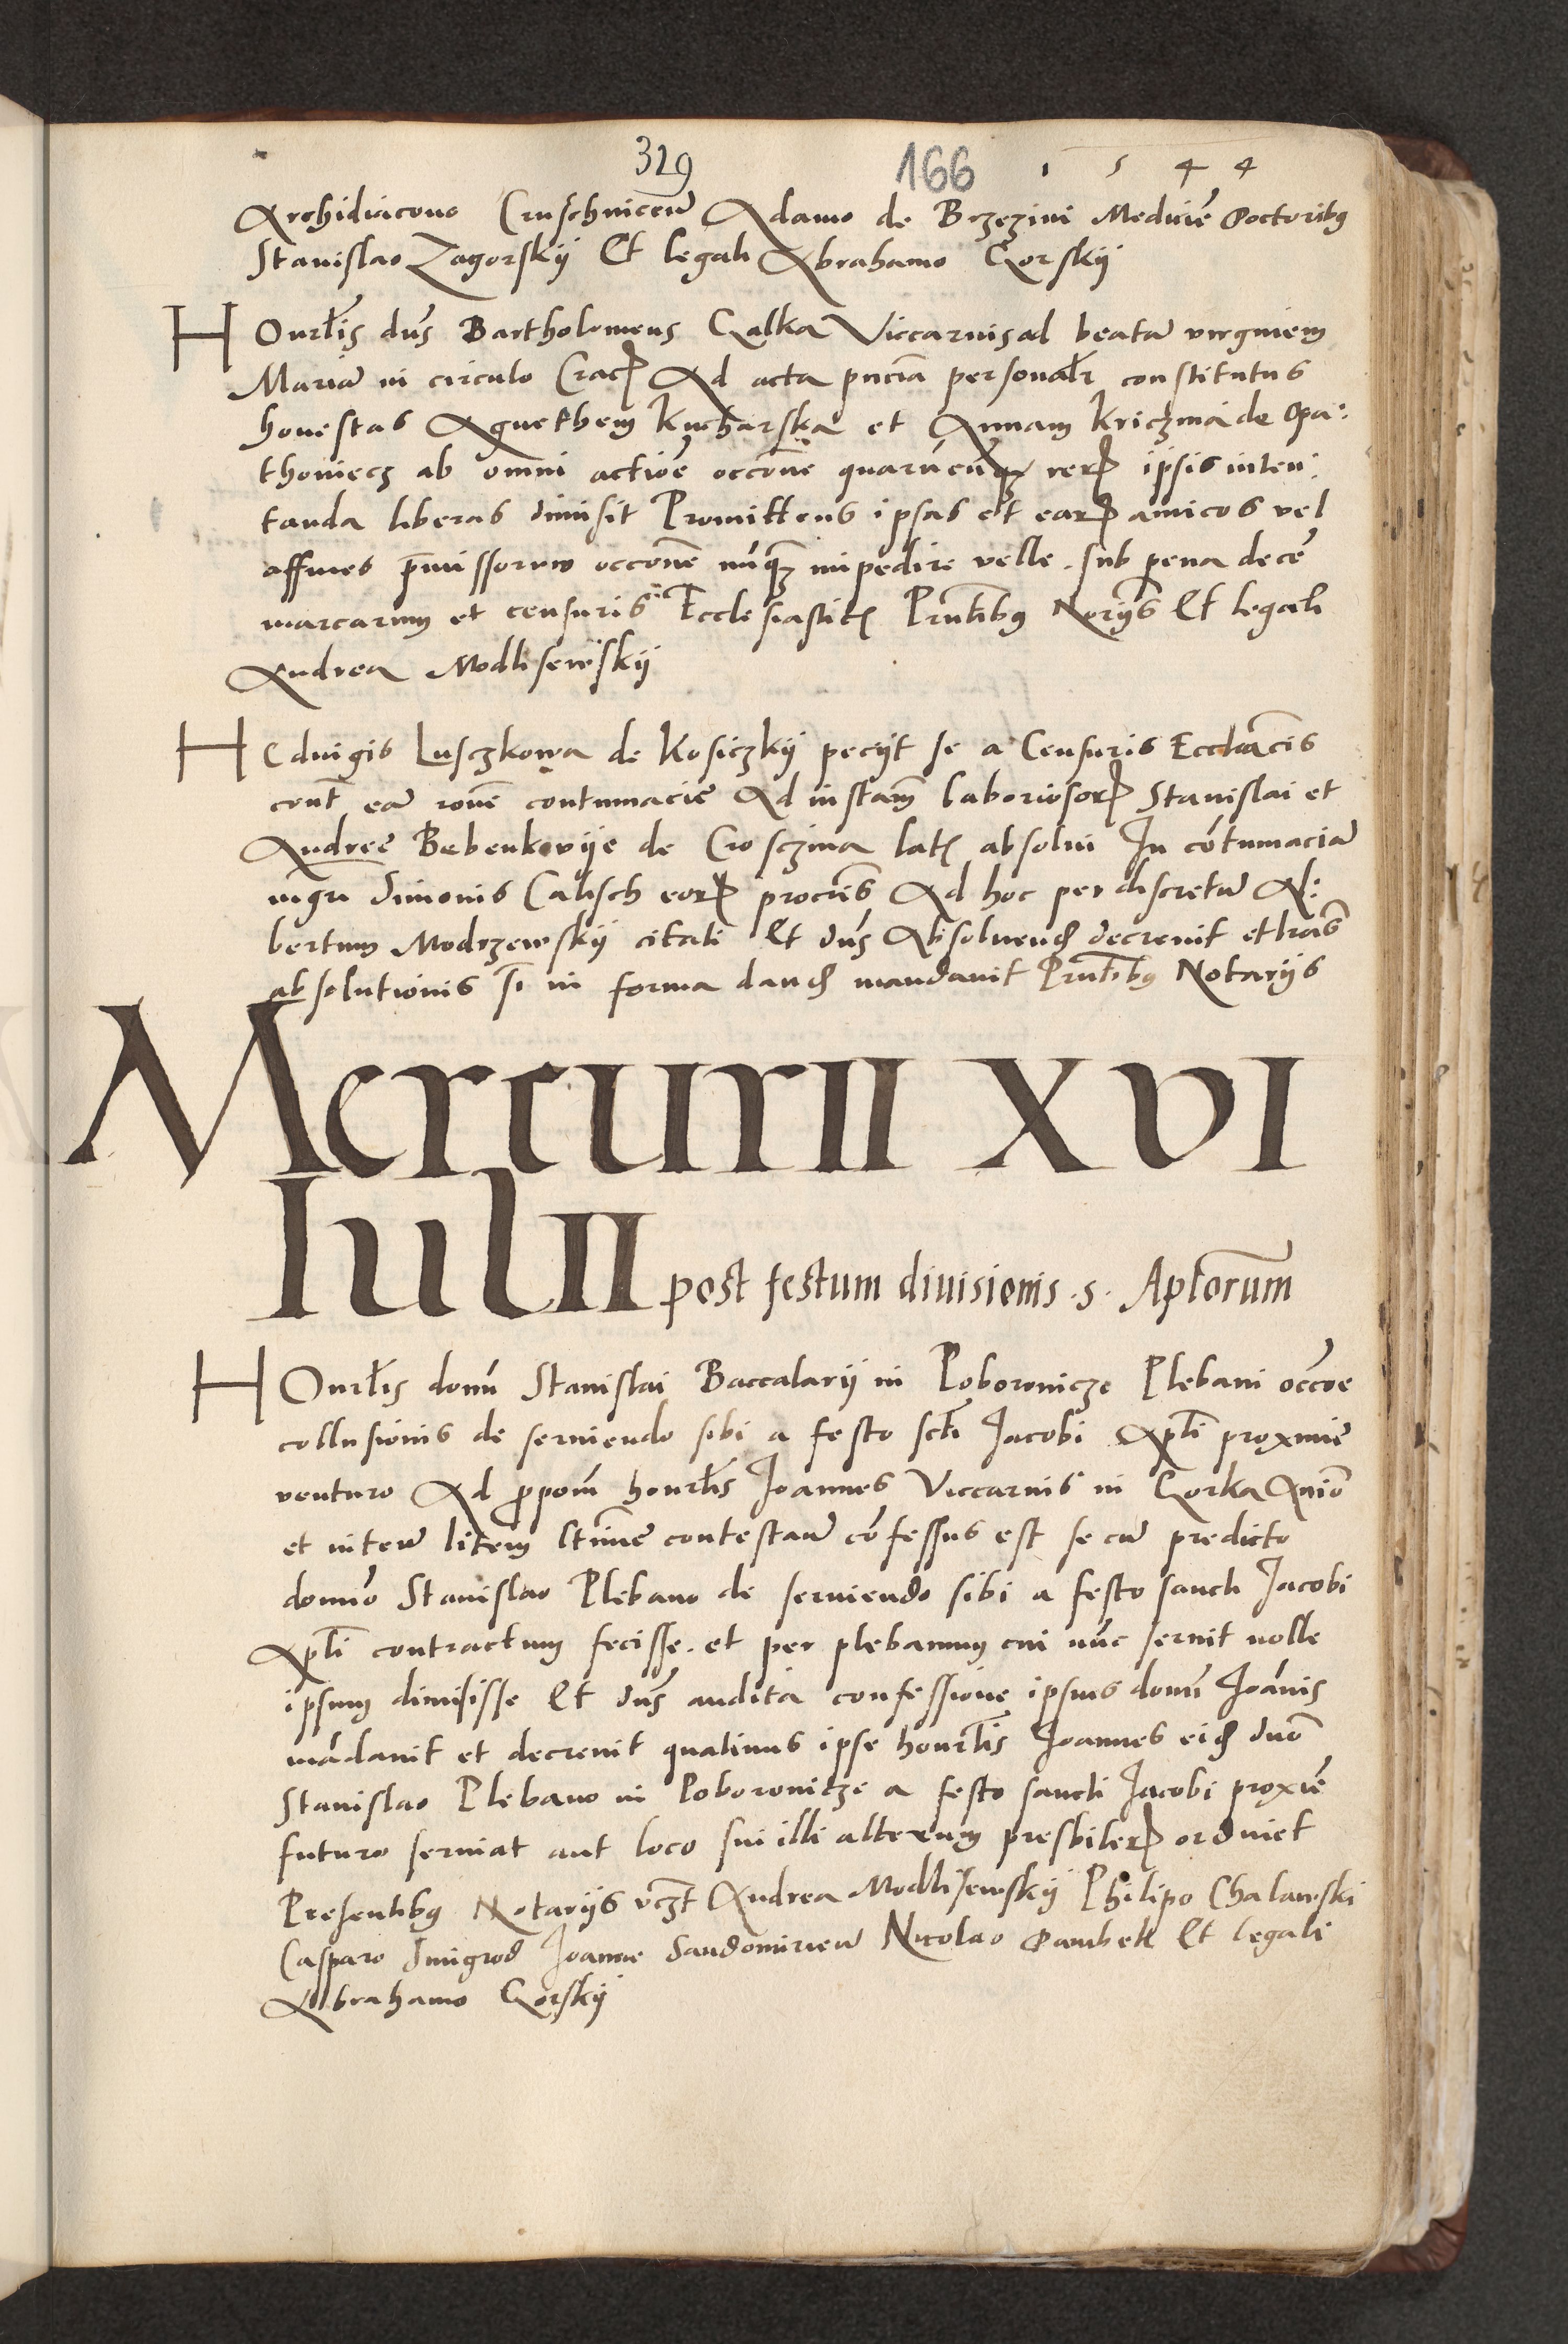 329 166 1 5 4 4
Archidiacono Cruschwiceñ Adamo de Brzezini Medicīe Doctoribȝ
Stanislao Zagorskij Et legali Abrahamo Gorskij
HOnrlis dñs Bartholomeus Galka Viccarius ad beatā virginem
Mariā in circulo Crac Ad acta pñcia personalr constitutus
honestas Agnethem Kucharska et Annam Kriczina de Opa:
thoniecz ab omni actiōe occōne quarūcūqȝ rerꝝ ipsis inten:
tanda liberas dimisit Promittens ipsas et earꝝ amicos vel
affines p̄missorum occōnē nūqȝ impedire velle. sub pena decē
marcarum et censuris Ecclesiastic Pr̃ntibȝ Norijs Et legali
Andrea Modlisewskij
HEdvigis Luschkowa de Kosiczkij pecijt se a Censuris Eccl̃acis
cont̃ eā rōnē contumacie Ad instam̃ laboriosorꝝ Stanislai et
Andree Bebenkovije de Crosczina lat absolui In cōtumaciā
mgri Simonis Calisch eorꝝ procris Ad hoc per discretū Al:
bertum Modrzewskij citati Et dñs Absoluend decreuit et lrās
absolutionis sī in forma dand mandauit Pr̃ntibȝ Notarijs
MercurII XVI
IulII post festum diuisionis .s. Apl̃orum̃
HOnrlis domī Stanislai Baccalarij in Poboronicze Plebani occōe
collusionis de seruiendo sibi a festo scti Jacobi Apl̃i proxime
venturo Ad ꝓpom̃ honrlis Joannes Viccarius in Gorka Aniō
et inteñ litem ltime contestañ cōfessus est se cū predicto
domīo Stanislao Plebano de seruiendo sibi a festo sancti Jacobi
Apl̃i contractum fecisse. et per plebanum cui nūc seruit nolle
ipsum dimisisse Et dñs audita confessione ipsius domī Joānis
mādauit et decreuit quatinus ipse honrlis Joannes eid dnō
Stanislao Plebano in Poboronicze a festo sancti Jacobi proxīe
futuro seruiat aut loco sui illi alterum presbiterꝝ ordinet
Presentibȝ Notarijs vczt Andrea Modlisewskij Philipo Chalawski
Casparo Smigrod Joanne Sandomirieñ Nicolao Dambek Et legali
Abrahamo Gorskij